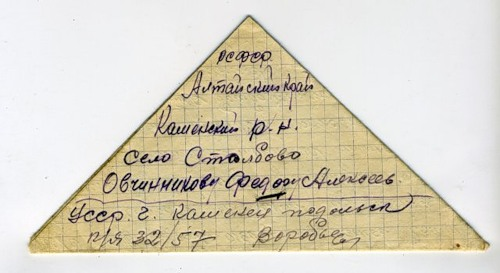 РСФСР
Алтайский край
Каменский р.н.
село Столбово
Овчинникову Федору Алексеев.
Усср. г. Каменец подольск
п/я 32/57 Воробьев